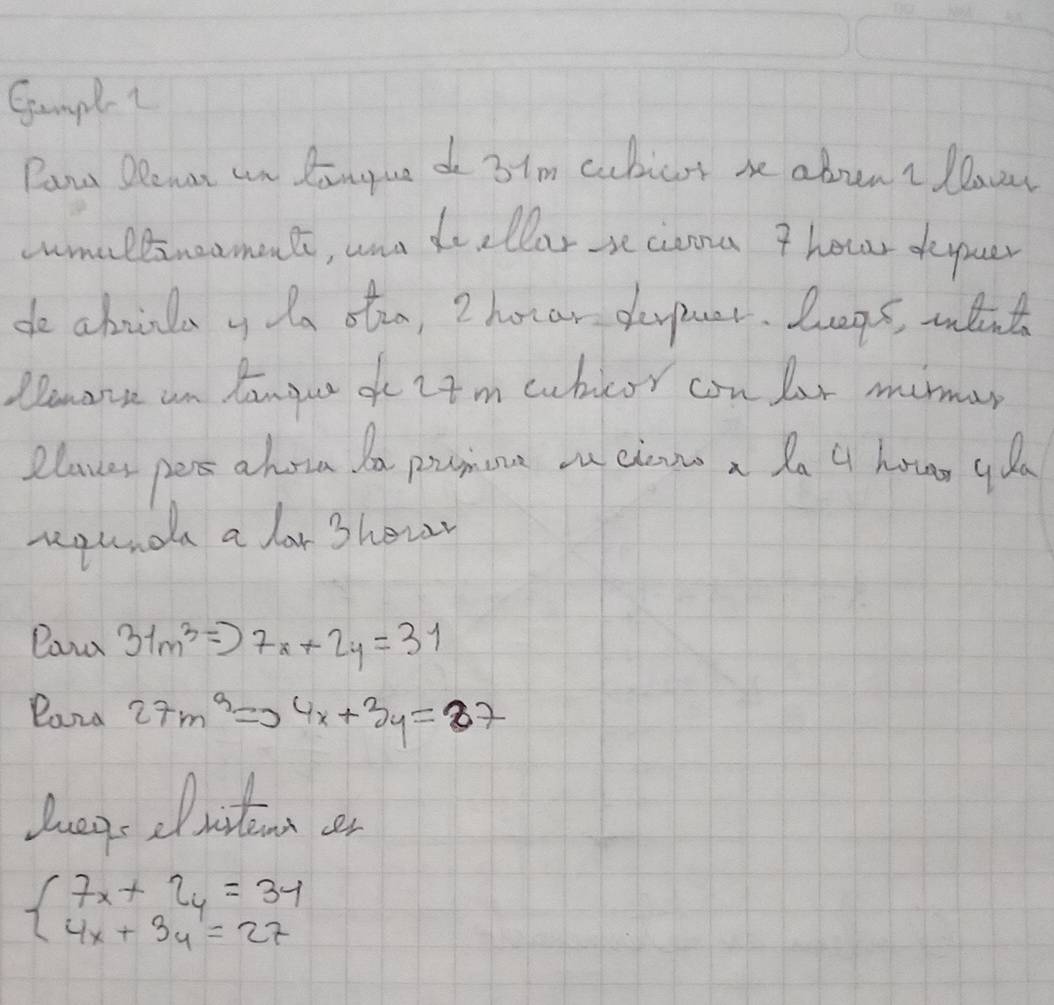 Ejemplo 1
Para llenar un tanque de 31m cubicos se abren 2 llaves
simultáneamente, una de ellas se cierra 7 horas despues
de abrirla y la otra, 2 horas despues. luego, intenta
llenarse un tanque de 27 m cubicos con las mismas
llaves pero ahora la primera se cierro a la 4 horas y la
segunda a las 3 horas
Para 31m³ => 7x + 2y = 31
Para 27m³ => 4x + 3y = 27
luego el sistema es
{ 7x + 2y = 31
4x + 3y = 27